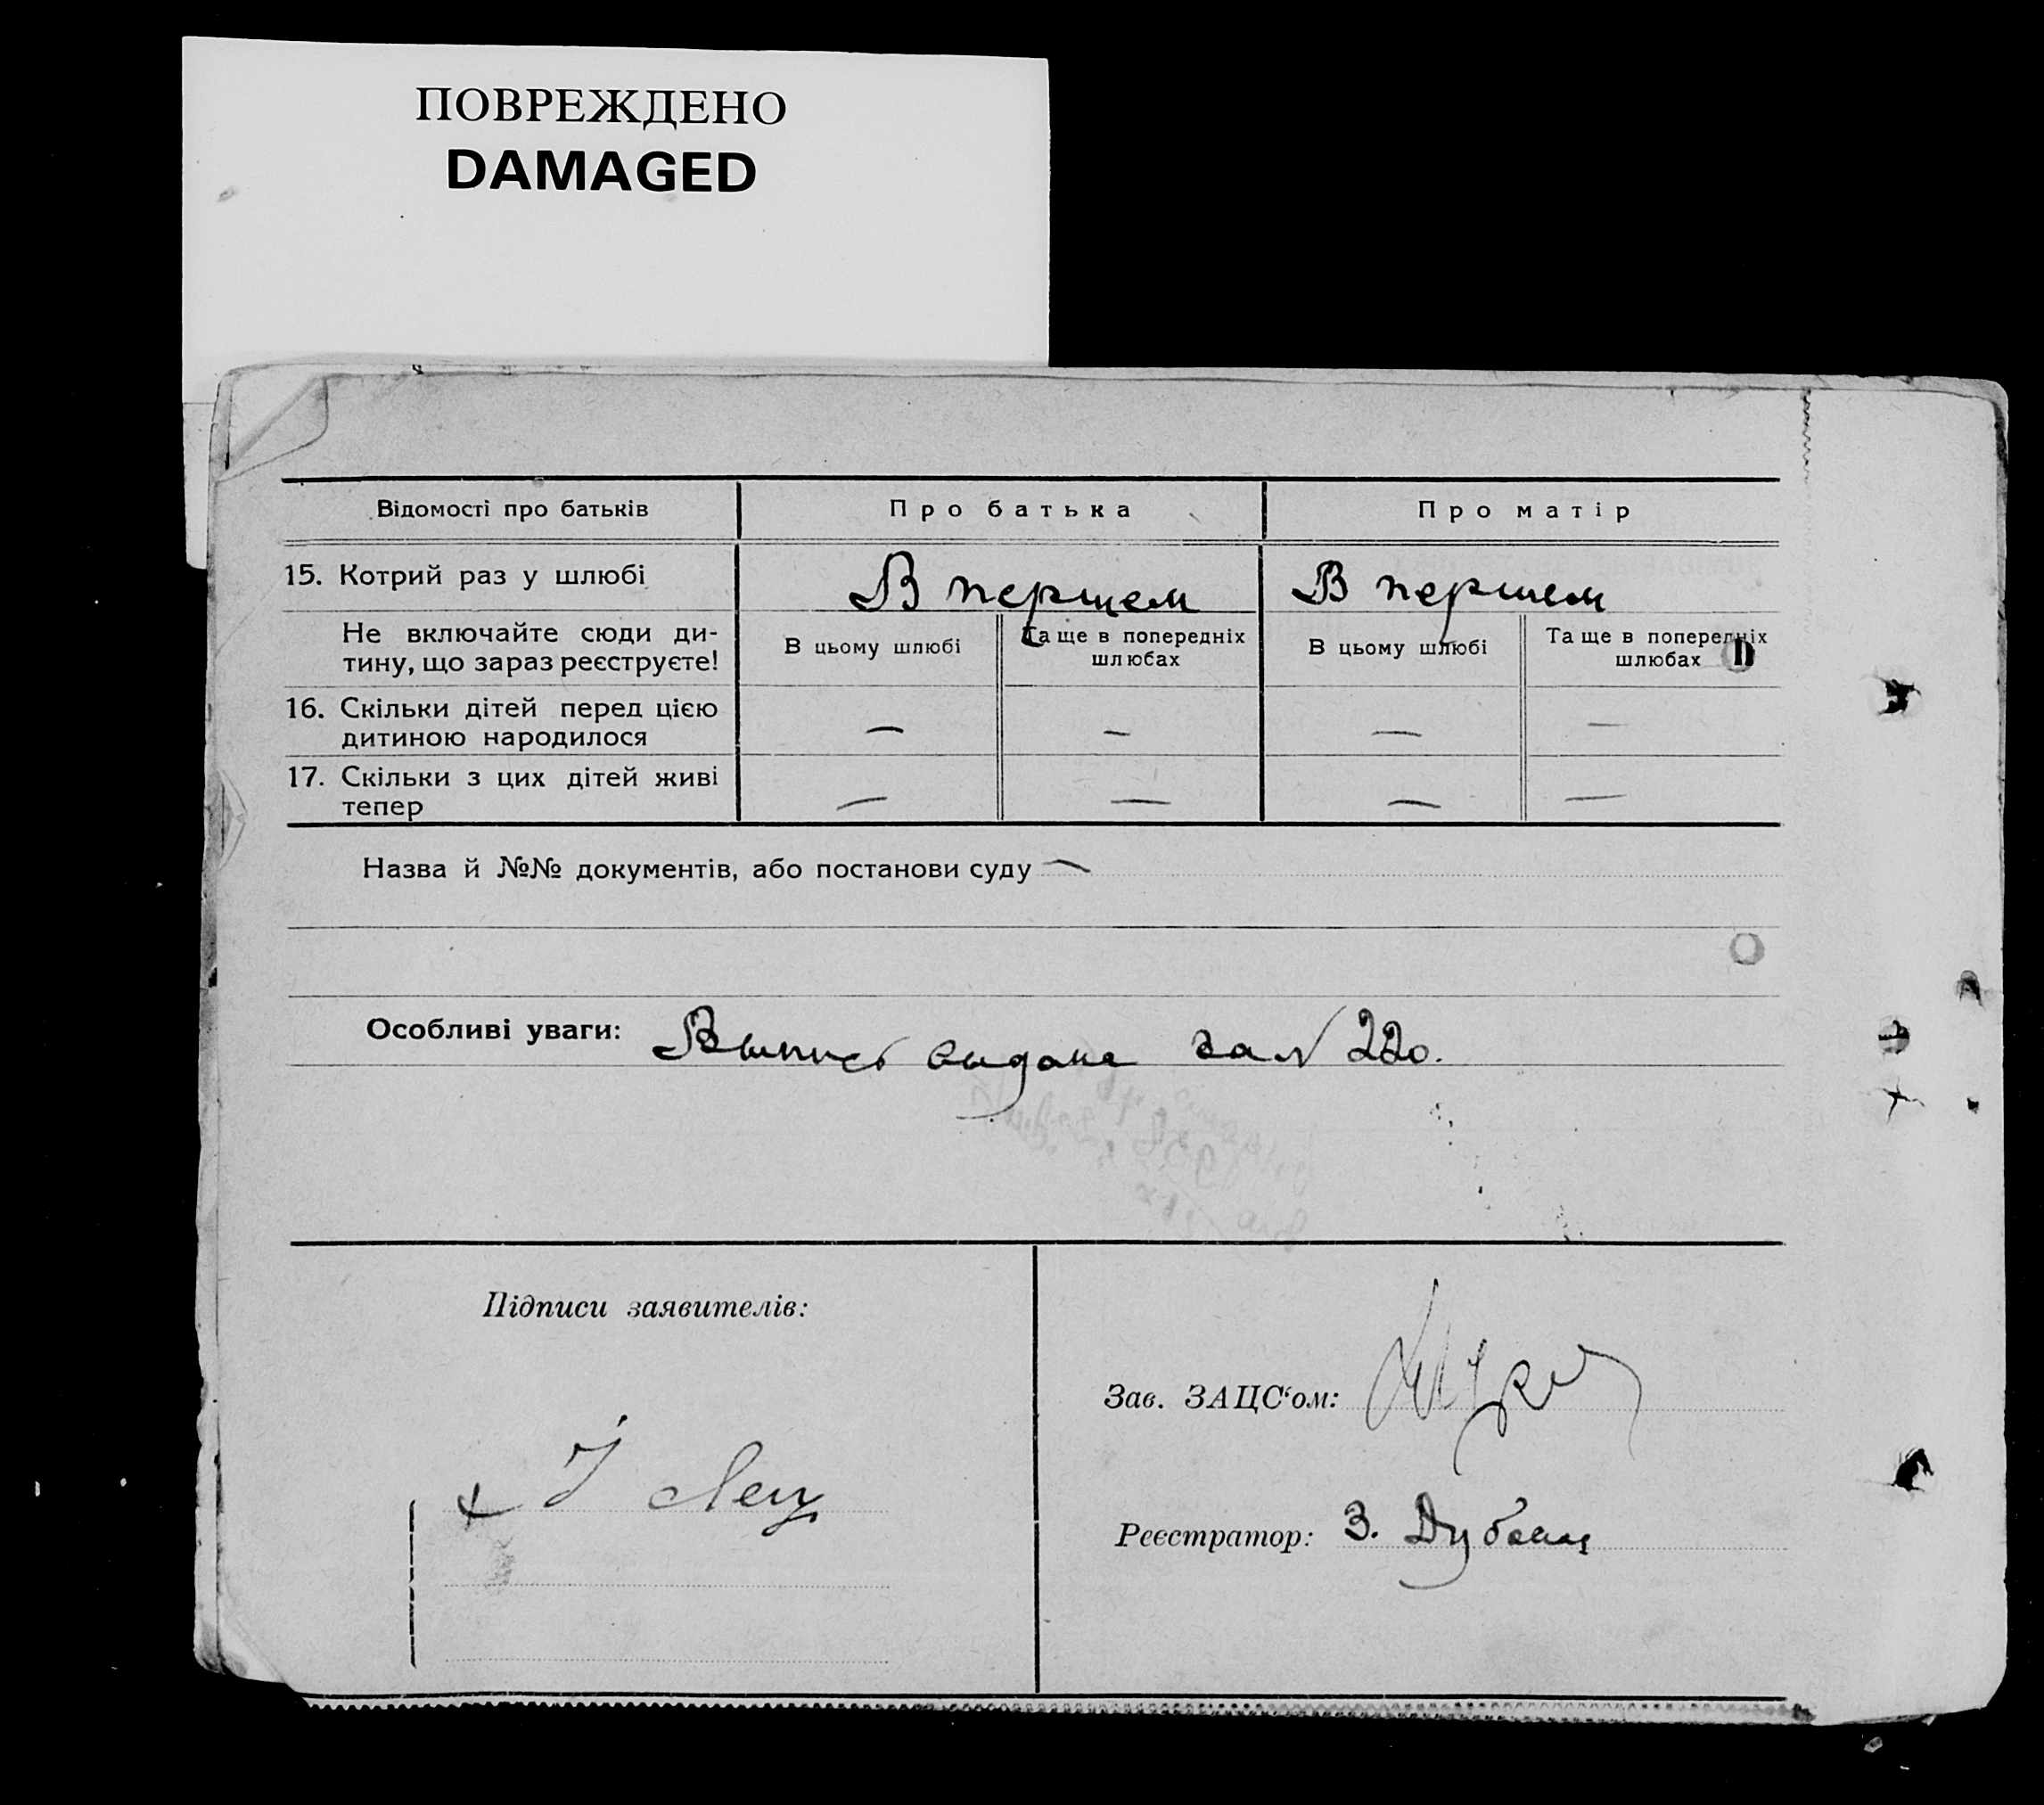 ПОВРЕЖДЕНО
DAMAGED
Відомості про батьків
Про батька
Про матір
15. Котрий раз у шлюбі
В першем
В першем
Не включайте сюди ди-
тину, що зараз реєструєте!
В цьому шлюбі
Та ще в попередніх
шлюбах
В цьому шлюбі
Та ще в попередніх
шлюбах
16. Скільки дітей перед цією
дитиною народилося
—
—
—
—
17. Скільки з цих дітей живі
тепер
—
—
—
—
Назва й №№ документів, або постанови суду —
Особливі уваги: Выпись выдана за N 220.
Підписи заявителів:
Зав. ЗАЦС‘ом:
Реєстратор: З.